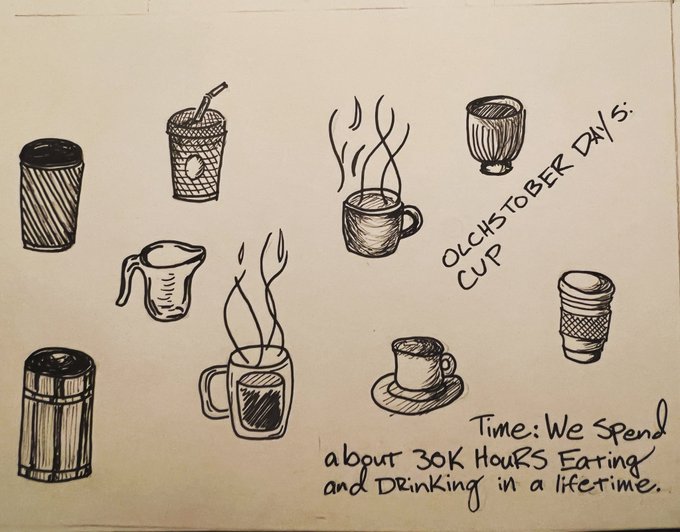 OLCHSTOBER DAY 5:
CUP
Time: We Spend
about 30K HouRS Eating
and DRinKing in a lifetime.